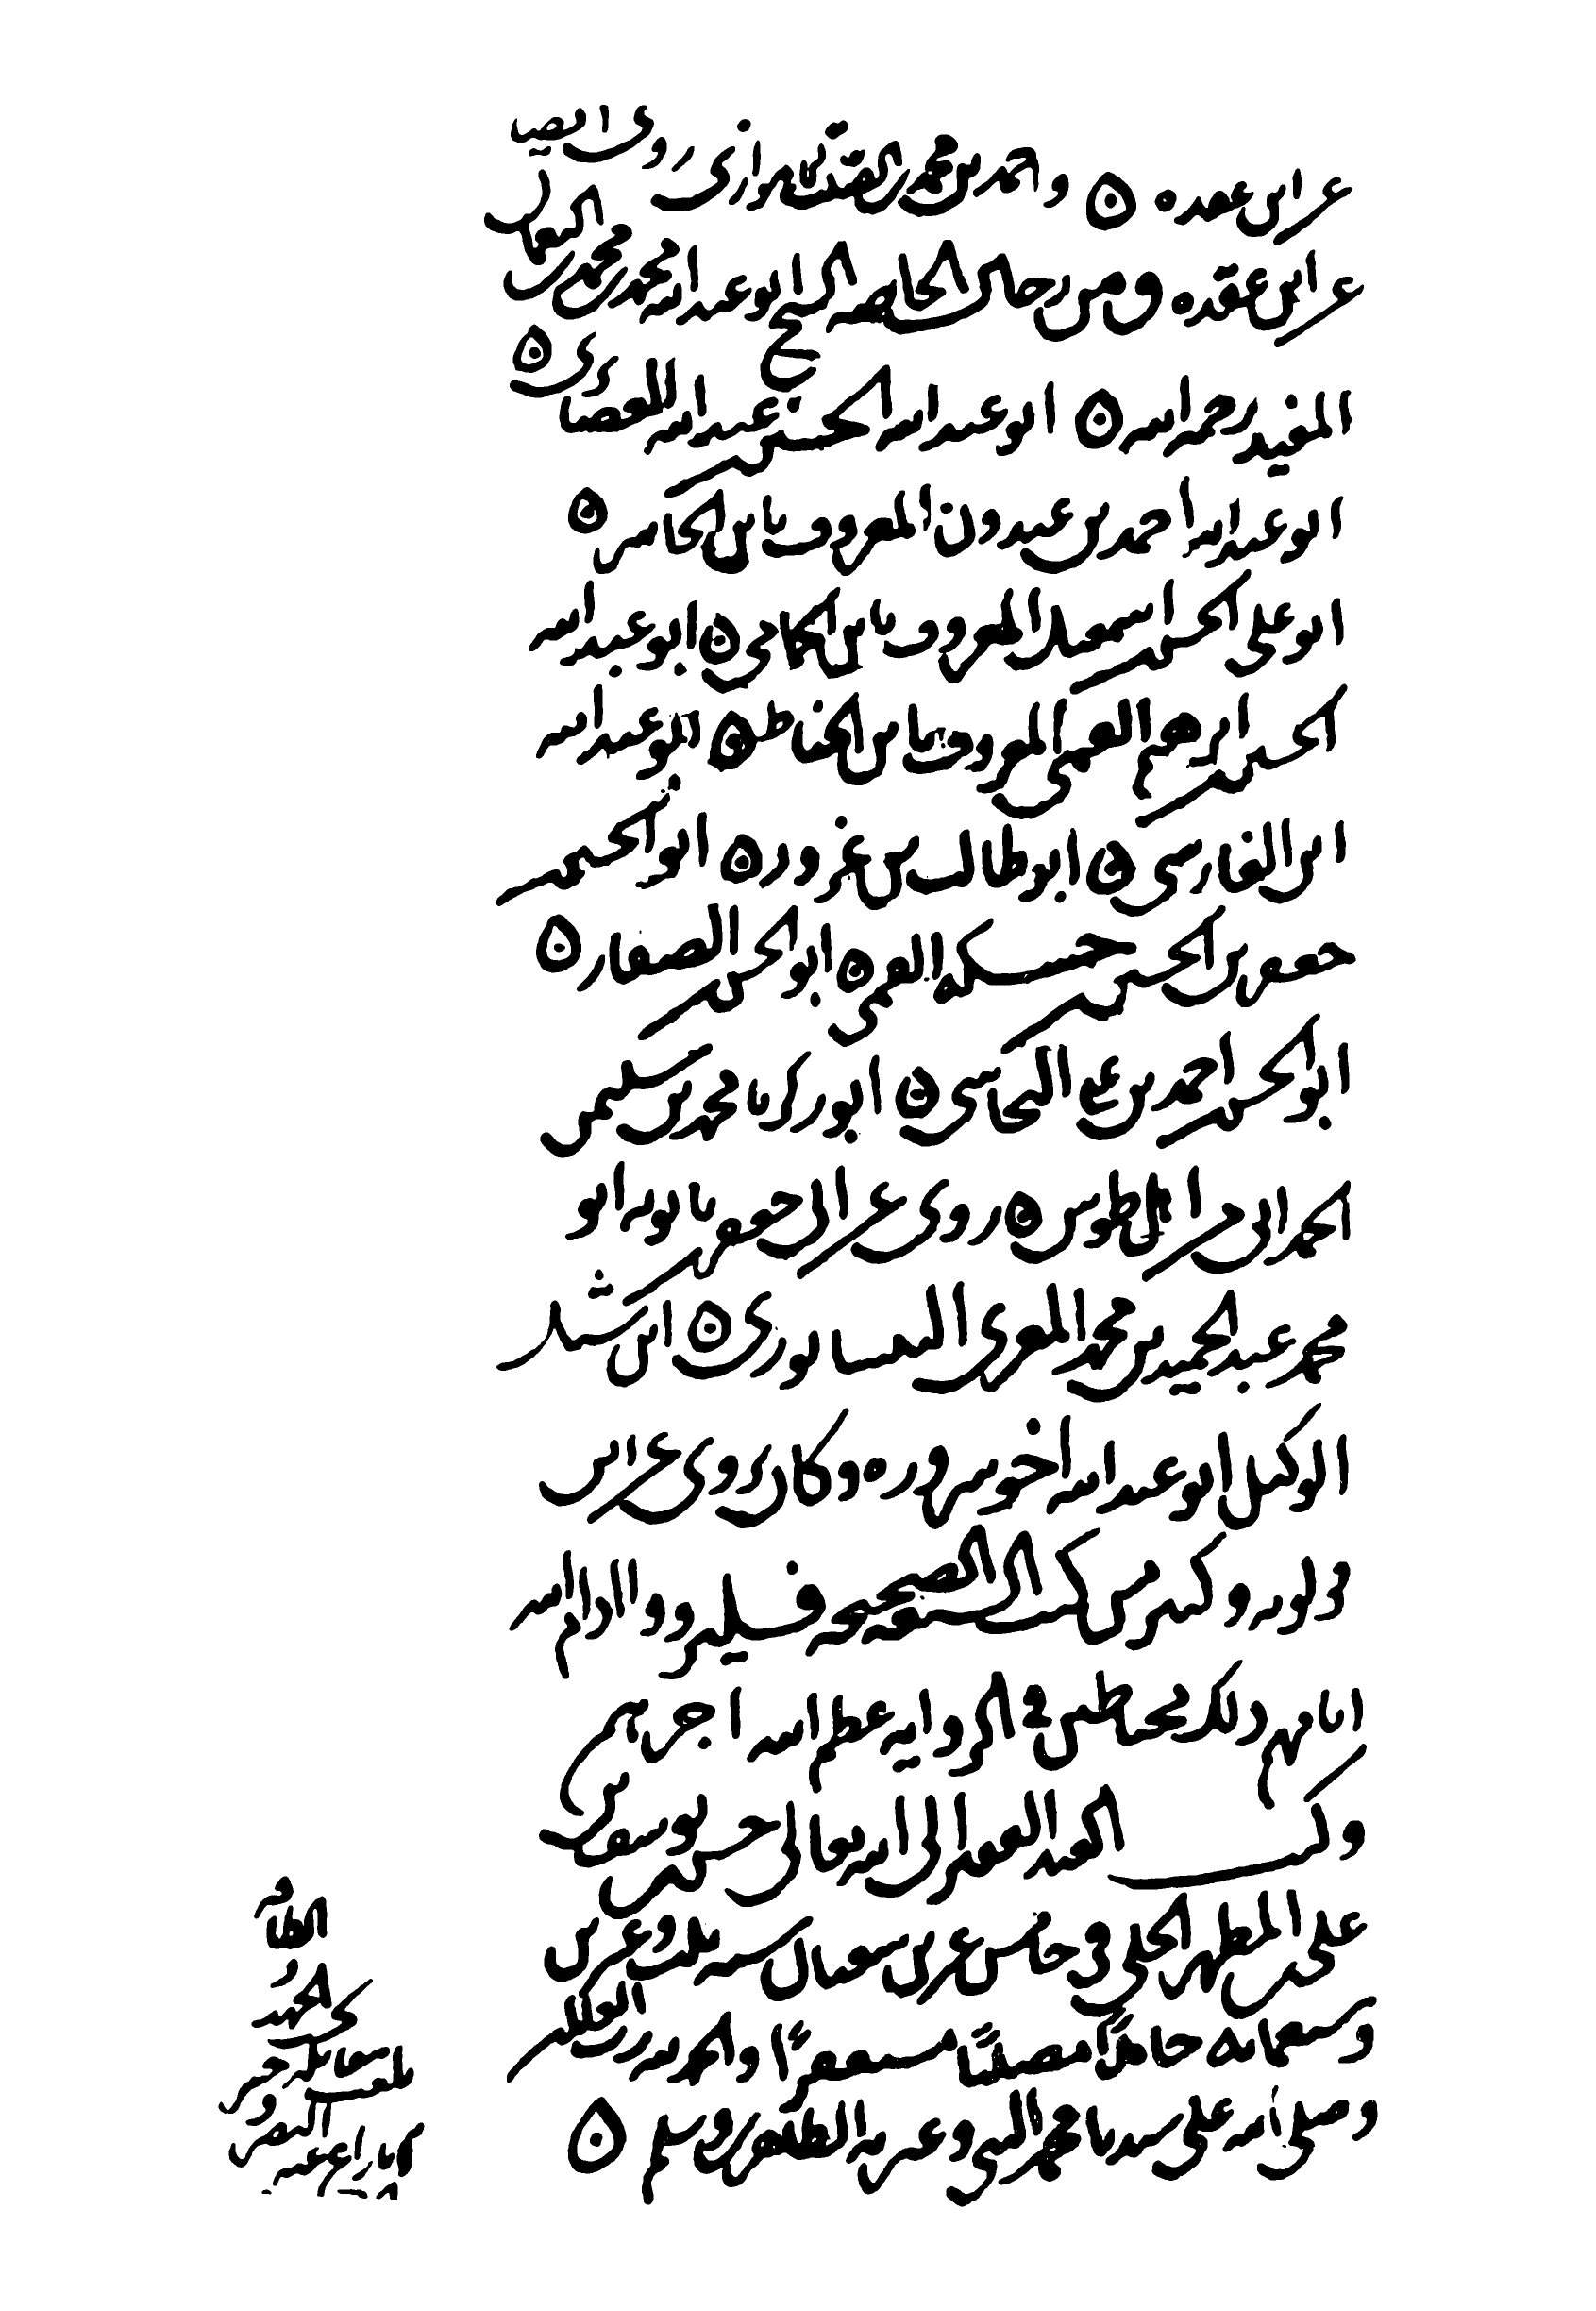 عن ابن عقده ⊙ واحمد بن محمد بن الصلت الاهوازى روى ايضا
عن ابن عقده ومن رجال الخاصه الشيخ ابو عبد الله محمد بن محمد بن النعمان
المفيد رحمه الله ⊙ ابو عبد الله الحسين بن عبيد الله الغضايرى ⊙
ابو عبد الله احمد بن عبدون المعروف بابن الحاشر ⊙
ابو على الحسن بن اسمعيل المعروف بابن الحمامى ⊙ ابو عبد الله
الحسين بن ابرهيم القمى المعروف بابن الخياط ⊙ ابو عبد الله
ابن الفارسى ⊙ ابو طالب بن غرور ⊙ ابو الحسين بن
جعفر بن الحسين بن حسكه القمى ⊙ ابو الحسن بن الصفار ⊙
ابو الحسين بن احمد بن على النجاشى ⊙ ابو زكريا محمد بن سليمن
الحمرانى من اهل طوس ⊙ روى عن ابى جعفر بن بابويه ابو
محمد عبد الحميد بن محمد المقرى النيسابورى ⊙ ابن شبل
الوكيل ابو عبد الله اخو سروره وكان يروى عن ابن
قولويه وكثير من كتب الشيعه الصحيحه فليرووا ادام الله
ايامهم ذلك محتاطين فى الروايه عظم الله اجرهم
وكتب العبد الفقير الى الله تعالى حسن بن يوسف بن
على بن المطهر الحلى فى خامس عشرين شعبان سنه ثلث وعشرين
وسبعمائه حامدًا مصليًا مستغفرًا والحمد لله رب العالمين
وصلى الله على سيدنا محمد النبى وعترته الطاهرين وسلم ⊙